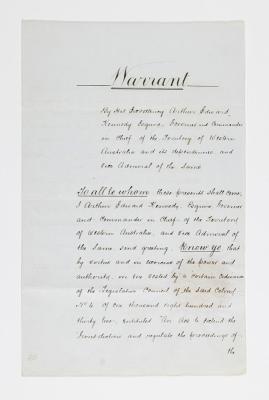 Warrant
By His Excellency Arthur Edward
Kennedy Esquire, Governor and Commander
in Chief of the Territory of Western
Australia and its dependencies and
Vice Admiral of the Same
To all to whom these presents shall come,
I Arthur Edward Kennedy, Esquire, Governor
and Commander in Chief of the Territory
of Western Australia, and Vice Admiral of
the Same send greeting. Know ye that
by virtue and in exercise of the power and
authority in me vested by a certain Ordinance
of the Legislative Council of the said Colony
No 4 of One thousand eight hundred and
thirty two, entitled "An Act to extend the
Jurisdiction and regulate the proceedings of
the